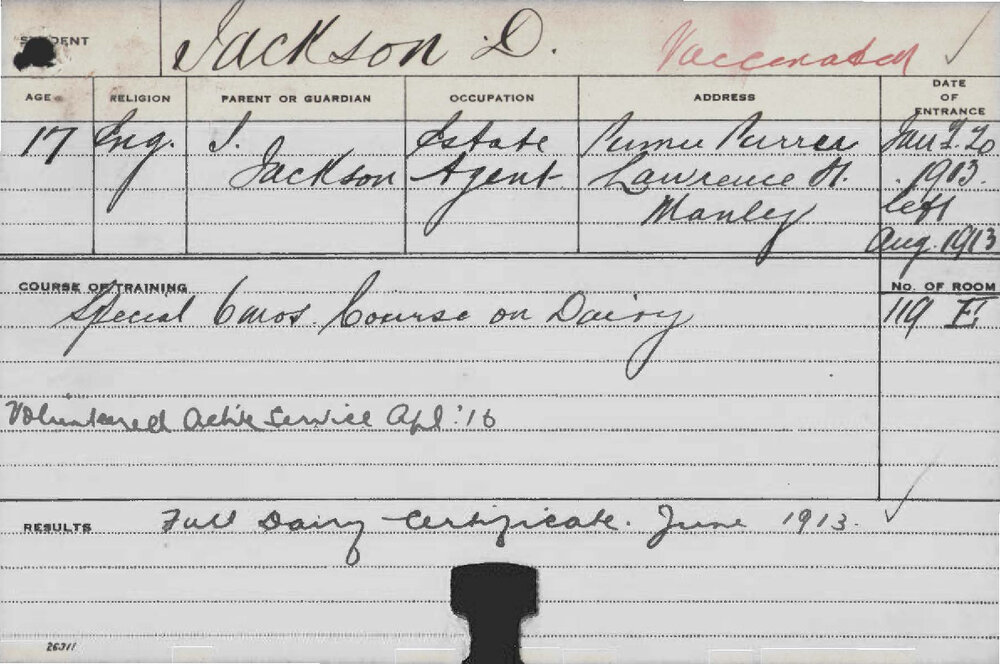 STUDENT Jackson D. Vaccinated
AGE RELIGION PARENT OR GUARDIAN OCCUPATION ADDRESS DATE OF ENTRANCE
17 Eng. J. Estate Jan
Jackson Agent Lawrence St. 1913.
Manley left
Aug. 1913
COURSE OF TRAINING No. OF ROOM
Special 6 mos. Course on Dairy 119 E.
Volunteered Active Service Apl. '16
RESULTS Full Dairy Certificate. June 1913.
26311